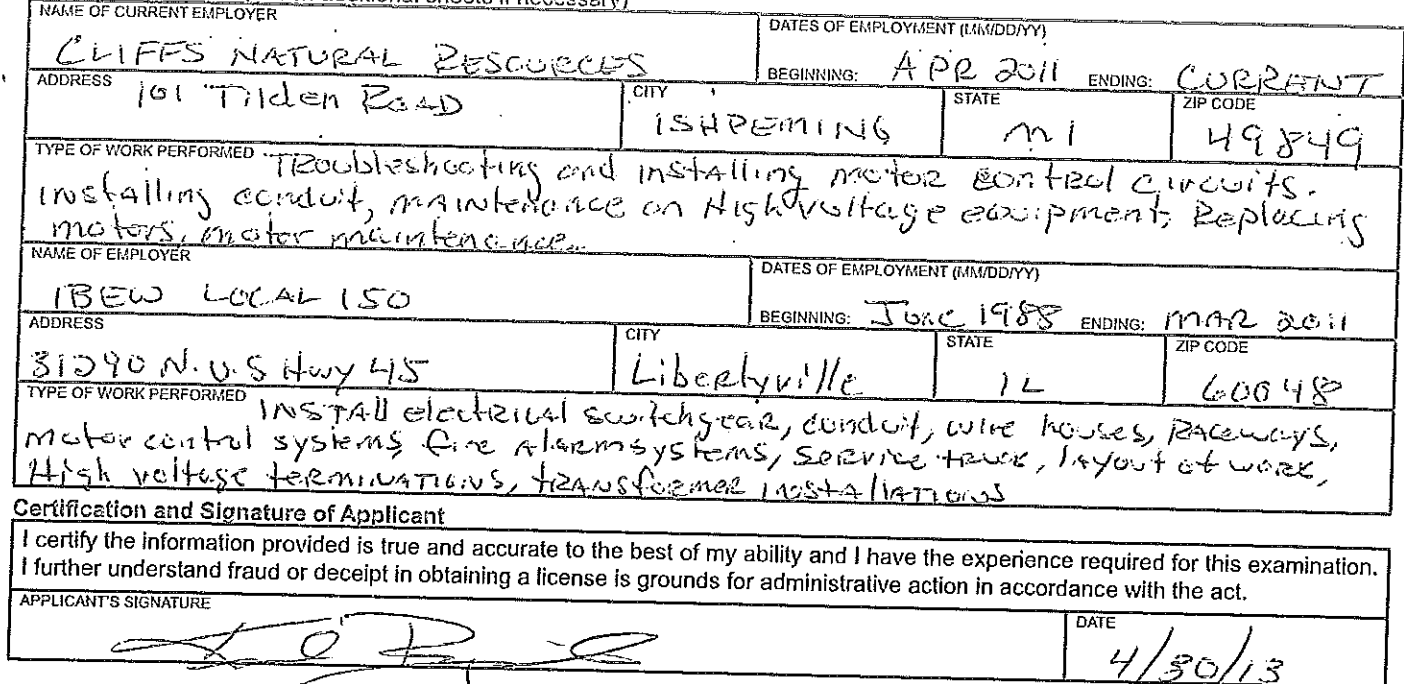 additional sheets if necessary)
NAME OF CURRENT EMPLOYER
DATES OF EMPLOYMENT (MM/DD/YY)
CLIFFS NATURAL RESOURCES
BEGINNING: APR 2011 ENDING: CURRENT
ADDRESS
CITY
STATE
ZIP CODE
101 Tilden ROAD
ISHPEMING
MI
49849
TYPE OF WORK PERFORMED TROubleshooting and INSTAlling motor control circuits.
INSTAlling conduit, MAINTenance on High voltage equipment, Replacing
motors, motor maintenance.
NAME OF EMPLOYER
DATES OF EMPLOYMENT (MM/DD/YY)
IBEW LOCAL 150
BEGINNING: June 1988 ENDING: MAR 2011
ADDRESS
CITY
STATE
ZIP CODE
31290 N. U.S Hwy 45
Libertyville
IL
60048
TYPE OF WORK PERFORMED INSTAll electRical switchgear, conduit, wire houses, RACEways,
Motor control systems, fire Alarm systems, SERVice truck, layout of work,
High voltage terminations, transformer installations
Certification and Signature of Applicant
I certify the information provided is true and accurate to the best of my ability and I have the experience required for this examination.
I further understand fraud or deceipt in obtaining a license is grounds for administrative action in accordance with the act.
APPLICANT'S SIGNATURE
DATE
4/30/13